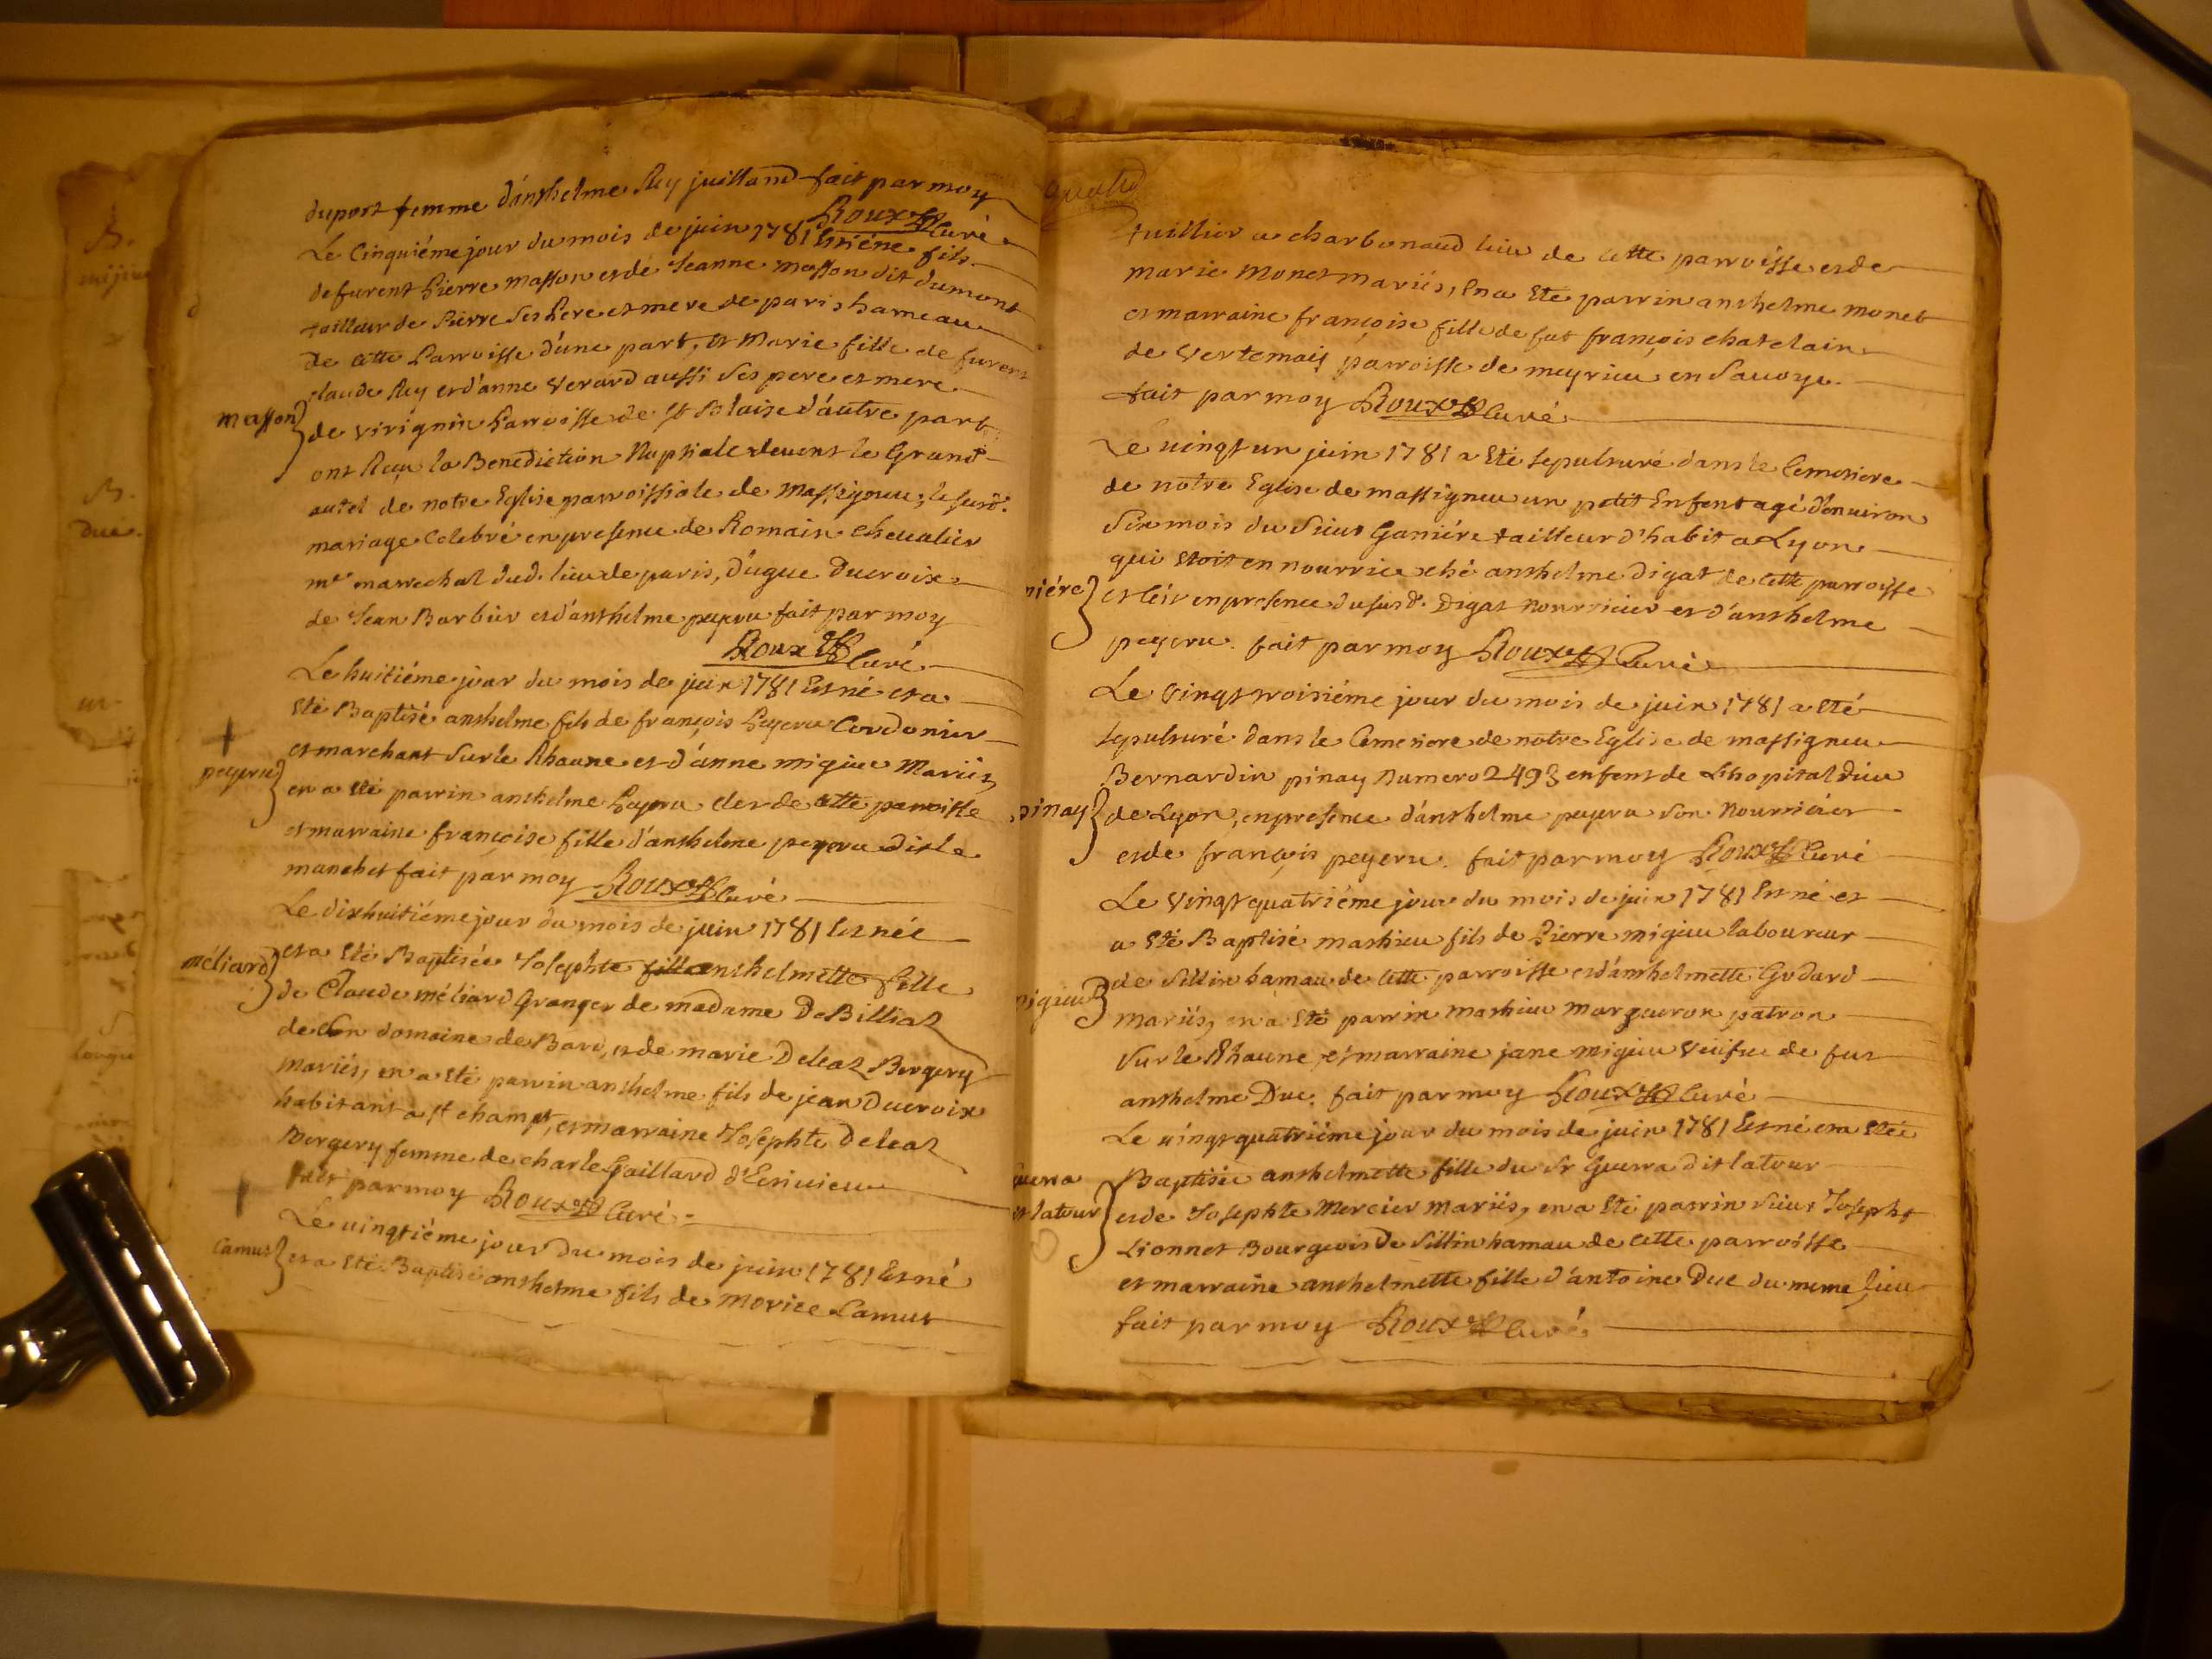 duport femme d'anthelme Ruy juilland fait par moy
Roux Curé
Le Cinquiéme jour du mois de juin 1781 Etiéne fils
de furent Pierre masson et de Jeanne masson dit dumont
tailleur de Pierre ses Pere et mere de paris hameau
de cette Parroisse d'une part, et Marie fille de furent
claude Ruy et d'anne Verard aussi ses pere et mere
masson
de virignin Parroisse de st Blaise d'autre part
ont Reçu la Benediction Nuptiale devent le Grand
autel de notre Eglise parroissiale de Massigneu; le susd.
mariage Celebré en presence de Romain Chevalier
me marechal dud. lieu de paris, d'ugue Ducroix
de Jean Barbier et d'anthelme peyeru fait par moy
Roux Curé
Le huitiéme jour du mois de juin 1781 Est né et a
été Baptisé anthelme fils de françois Peyeru Cordonier
et marchant sur le Rhaune et d'anne migieu Mariés
peyeru
en a été parrin anthelme Peyeru clerc de cette parroisse
et marraine françoise fille d'anthelme peyeru dit le
manchet fait par moy Roux Curé
Le dixhuitiéme jour du mois de juin 1781 Est née
méliard
et a été Baptisée Josephte fille anthelmette fille
de Claude méliard Granger de madame De Billiaz
de son domaine de Bare, et de marie Deleaz Bergery
mariés, en a été parrin anthelme fils de jean Ducroix
habitant a st champt, et marraine Josephte Deleaz
Bergery femme de charle Gaillard d'Ecrivieu
fait par moy Roux Curé
Le vingtiéme jour du mois de juin 1781 Est né
Camus
et a été Baptisé anthelme fils de Morice Camus
tuillier a charbonaud lieu de cette parroisse et de
marie Monet mariés, En a été parrin anthelme monet
et marraine françoise fille de fut françois chatelain
de Vertemais parroisse de meyrieu en Savoye
fait par moy Roux Curé
Le vingt un juin 1781 a été sepulturé dans le Cemetiere
de notre Eglise de massigneu un petit Enfent agé d'enuiron
six mois du sieur Ganiére tailleur d'habit a Lyon
qui etoit en nourrice ché anthelme digat de cette parroisse
niére
et c'est en presence du susd. Digat nourricier et d'anthelme
peyeru. fait par moy Roux Curé
Le vingt troisiéme jour du mois de juin 1781 a été
sepulturé dans le Cemetiere de notre Eglise de massigneu
Bernardin pinay numero 2493 enfent de L'hopital dieu
pinay
de Lyon, en presence d'anthelme peyeru son Nourricier
et de françois peyeru. fait par moy Roux Curé
Le Vingt quatriéme jour du mois de juin 1781 Est né et
a été Baptisé mathieu fils de Pierre migieu laboureur
de sillin hamau de cette parroisse et d'anthelmette Godard
migieu
mariés, en a été parrin mathieu margueron patron
sur le Rhaune, et marraine jane migieu veüfve de fut
anthelme Duc. fait par moy Roux Curé
Le vingt quatriéme jour du mois de juin 1781 Est né et a été
Baptisée anthelmette fille du Sr Guerra dit latour
uerra
it latour
et de Josephte Mercier mariés, en a été parrin sieur Joseph
Lionnet Bourgeois De sillin hamau de cette parroisse
et marraine anthelmette fille d'antoine Duc du meme lieu
fait par moy Roux Curé